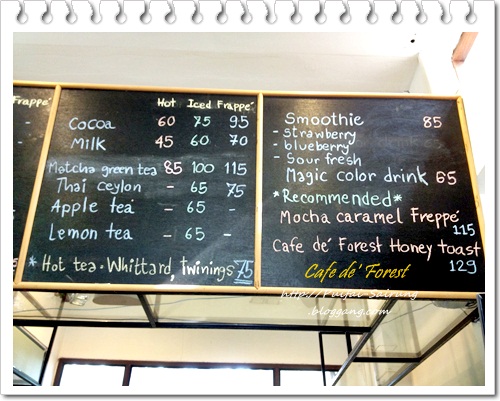 Frappé
Hot Iced Frappe'
Cocoa 60 75 95
Milk 45 60 70
Matcha green tea 85 100 115
Thai ceylon - 65 75
Apple tea - 65 -
Lemon tea - 65 -
* Hot tea • Whittard, Twinings 75
Smoothie 85
- Strawberry
- blueberry
- Sour fresh
Magic color drink 65
*Recommended*
Mocha caramel Freppé
115
Cafe de' Forest Honey toast
129
Cafe de' Forest
bloggang.com